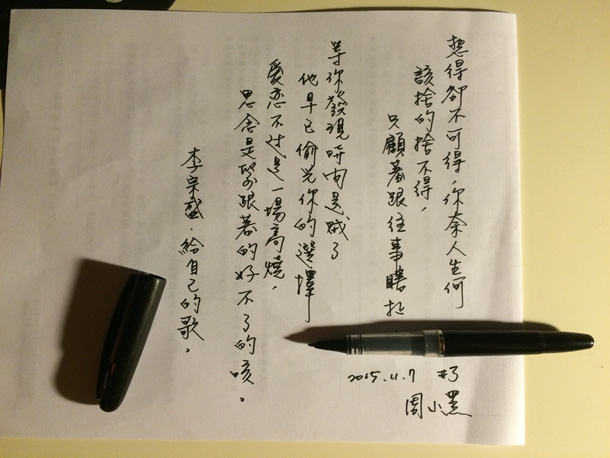 想得卻不可得，你奈人生何
該捨的捨不得，
只顧著跟往事瞎扯
等你發現時间是賊了
他早已偷光你的選擇
愛恋不过是一場高燒，
思念是緊跟著的好不了的咳。
李宗盛．給自己的歌。
2015.11.7 #3
周小黑